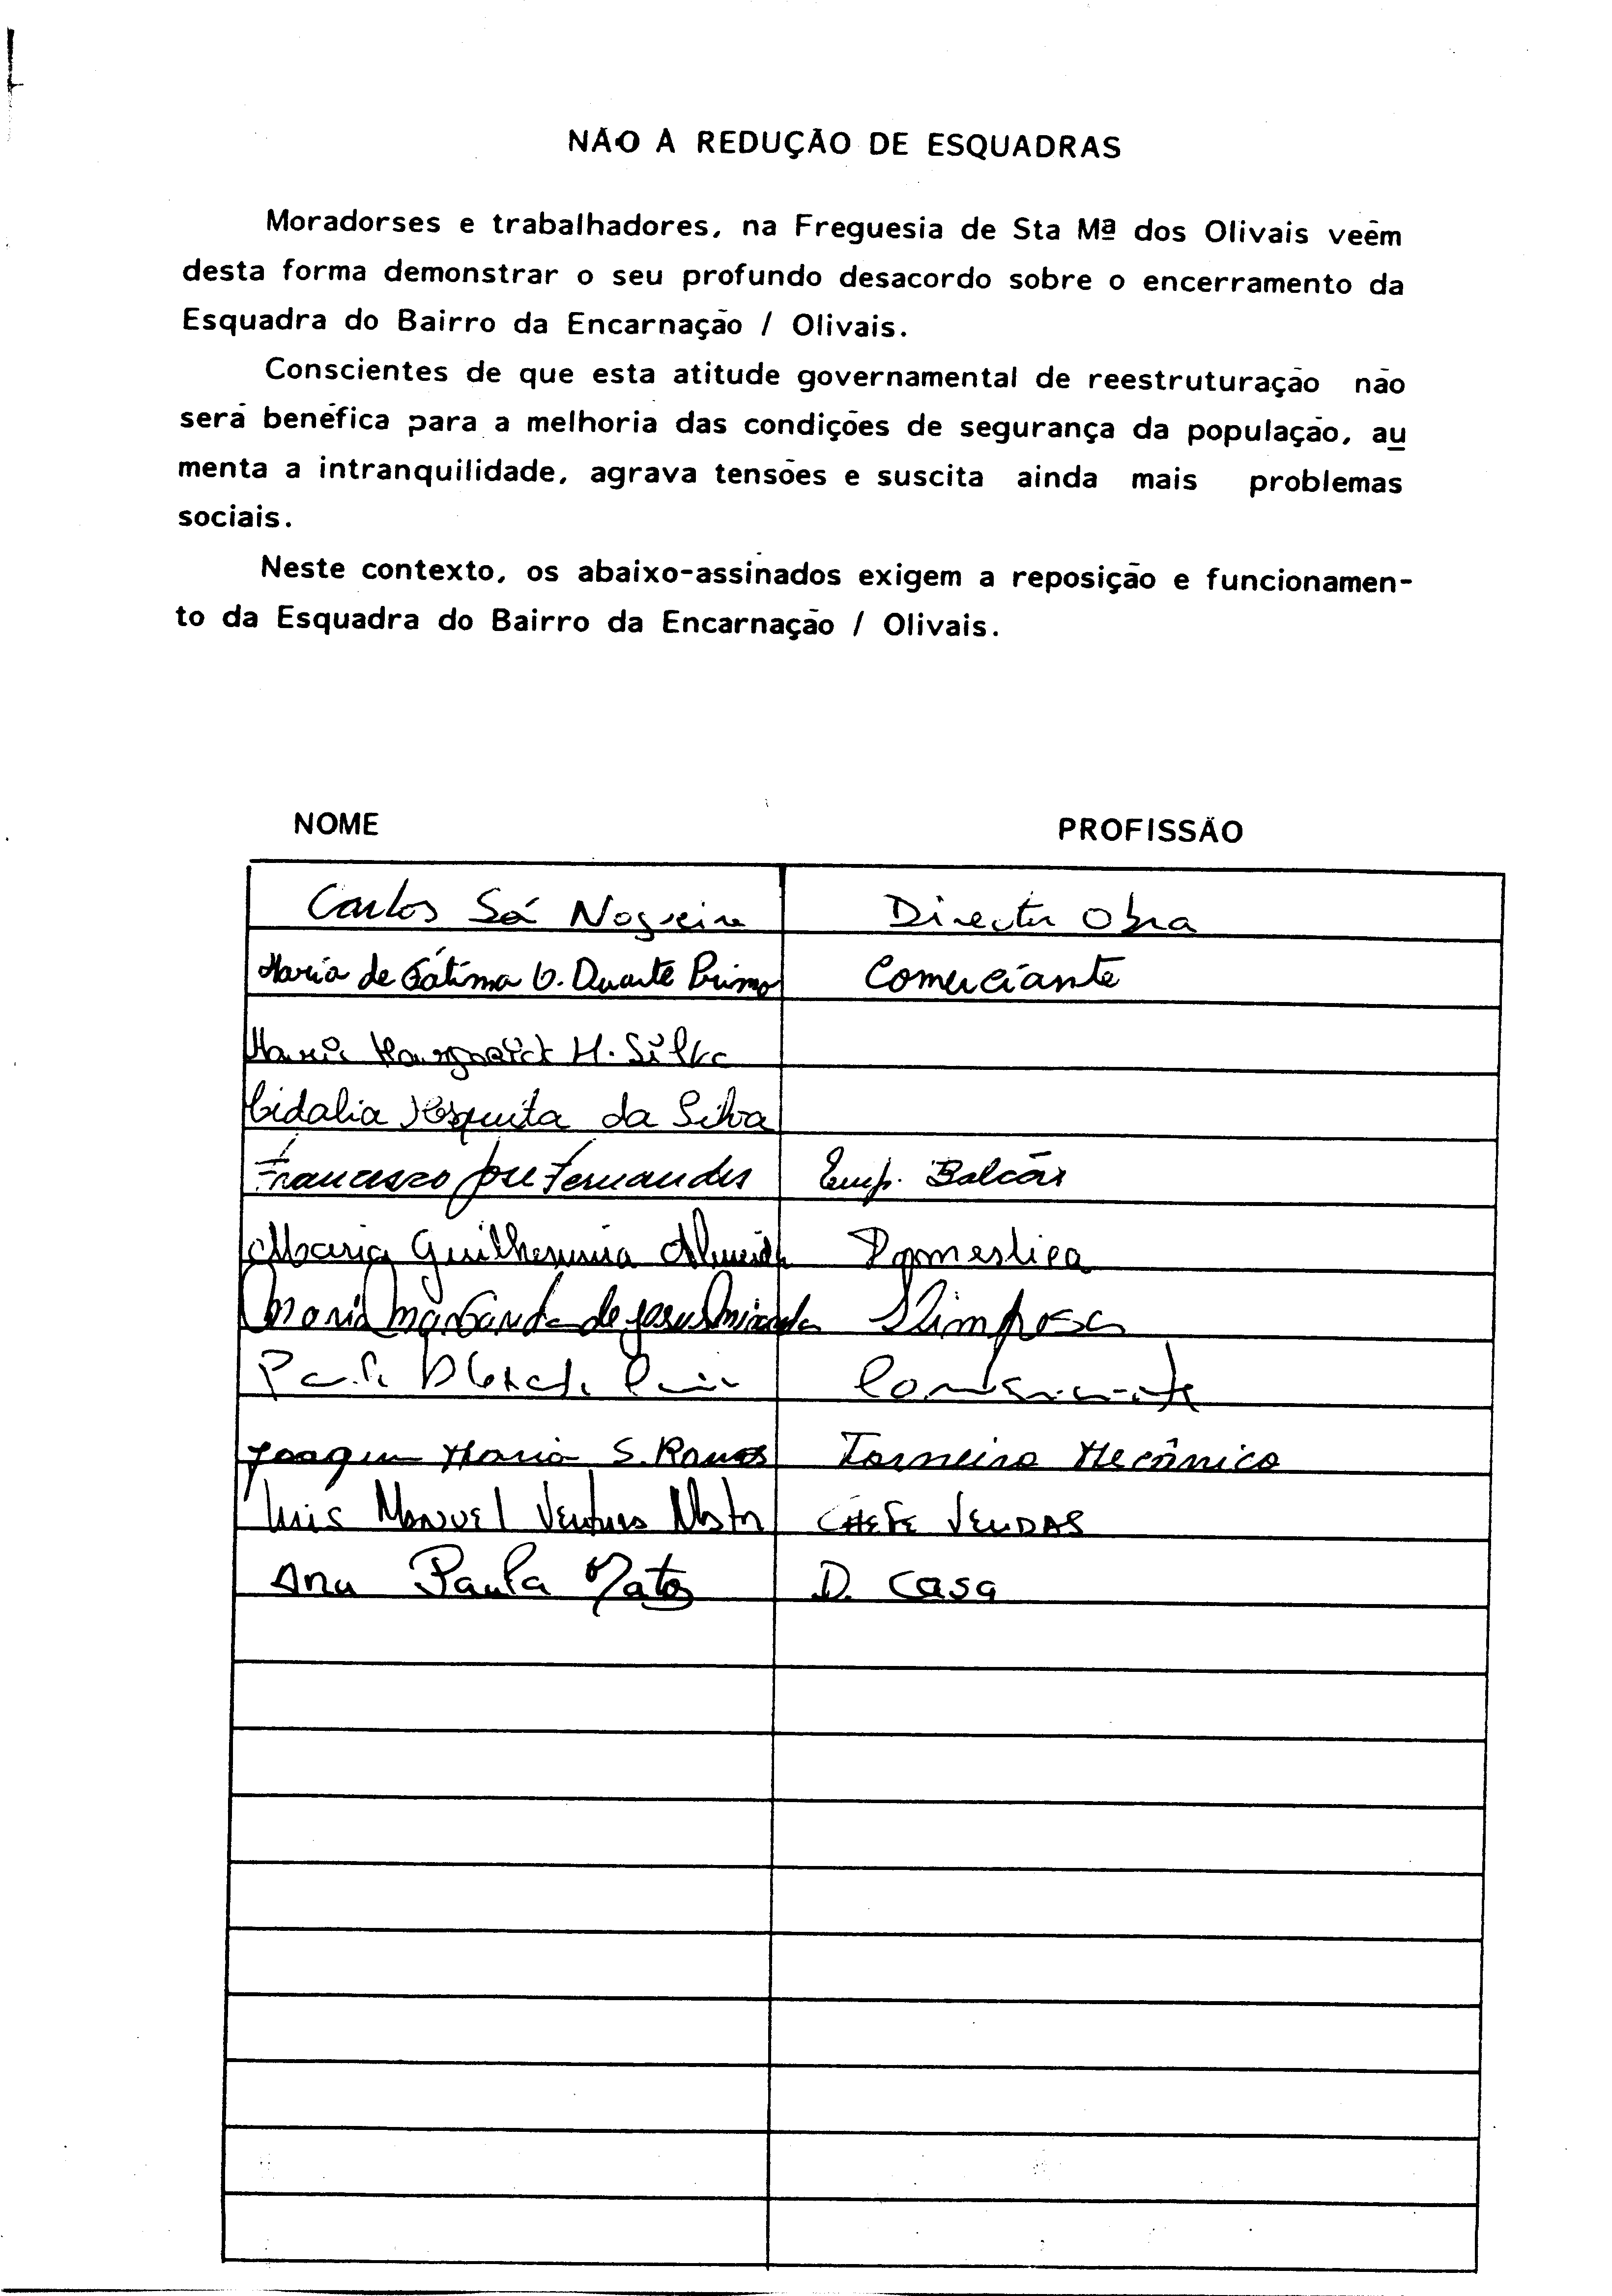 NÃO A REDUÇÃO DE ESQUADRAS
Moradorses e trabalhadores, na Freguesia de Sta Mª dos Olivais veêm
desta forma demonstrar o seu profundo desacordo sobre o encerramento da
Esquadra do Bairro da Encarnação / Olivais.
Conscientes de que esta atitude governamental de reestruturação não
será benéfica para a melhoria das condições de segurança da população, au
menta a intranquilidade, agrava tensões e suscita ainda mais problemas
sociais.
Neste contexto, os abaixo-assinados exigem a reposição e funcionamen-
to da Esquadra do Bairro da Encarnação / Olivais.
NOME PROFISSÃO
Carlos Sá Nogueira Director Obra
Maria de Fátima V. Duarte Primo Comerciante
Maria Margarida M. Silva
Cidalia Mesquita da Silva
Francisco José Fernandes Emp. Balcão
Maria Guilhermina Almeida Domestica
Maria Margarida de Jesus Miranda
Comerciante
Joaquim Maria S. Ramos Torneiro Mecânico
Luis Manuel Ventura CHEFE VENDAS
Ana Paula Matos D. Casa